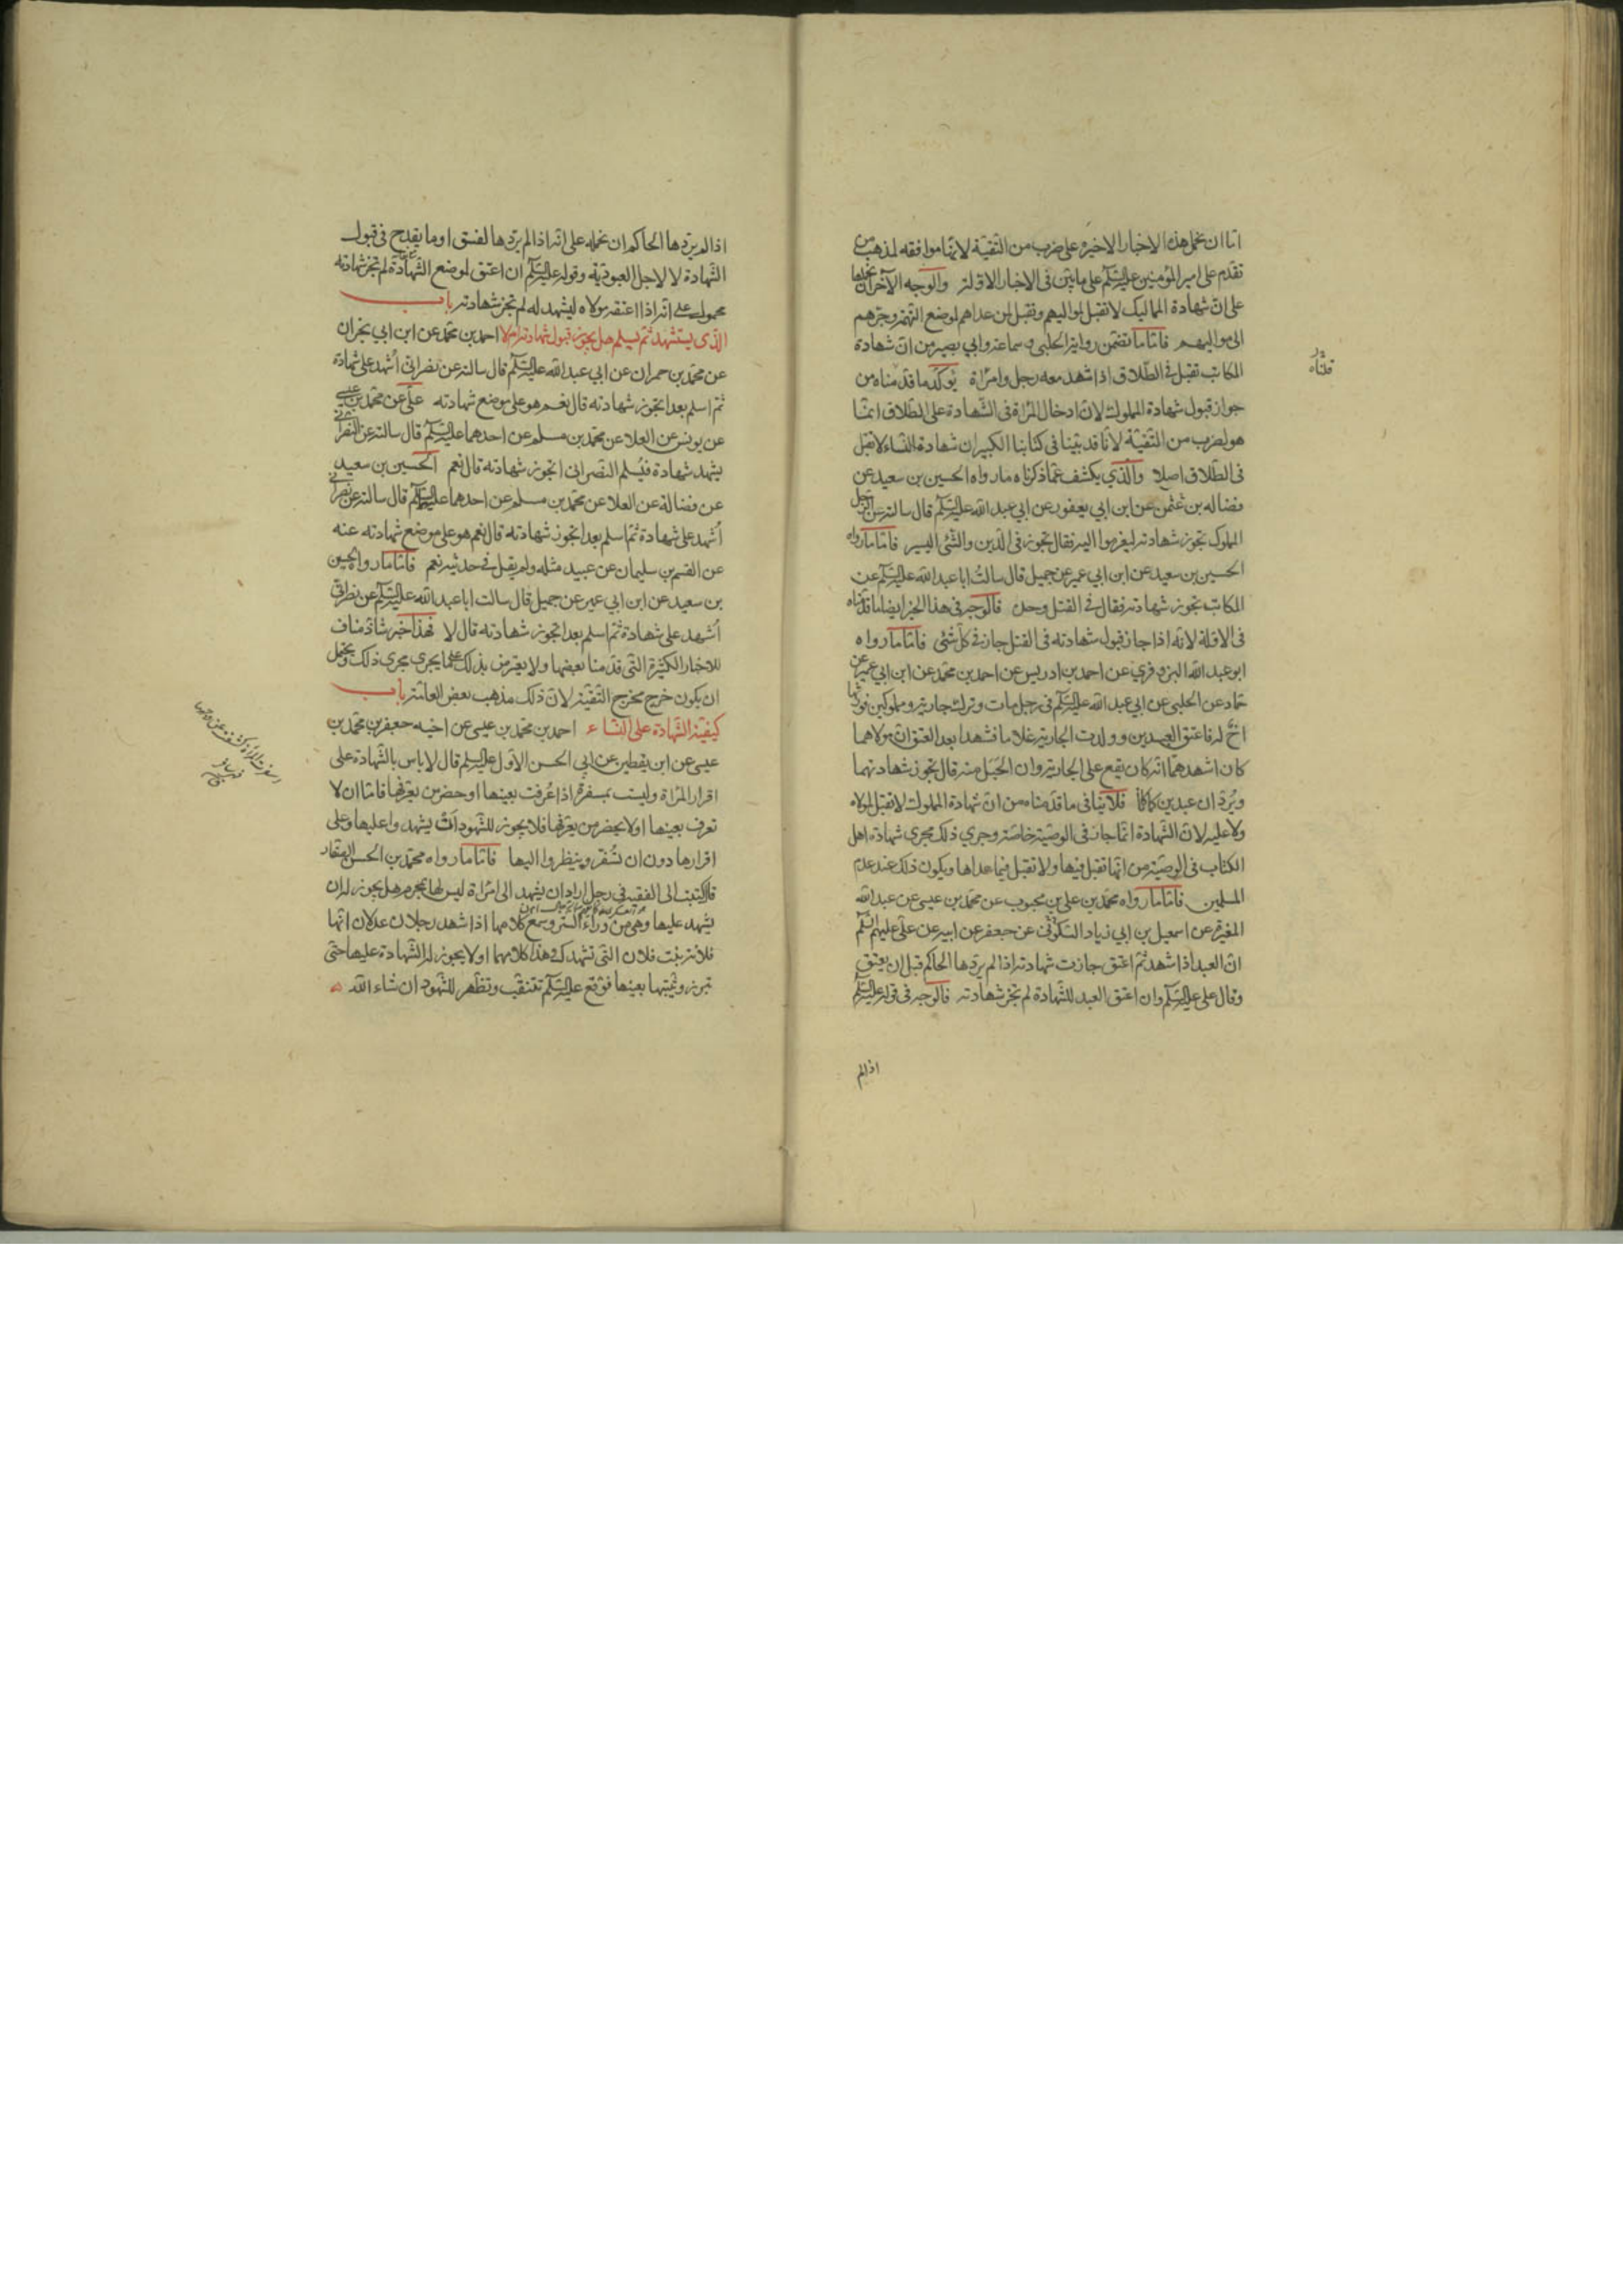 اما ان نحمل هذه الاخبار الاخيرة على ضرب من التقية لانها موافقه لمذهب من
تقدم على امير المؤمنين عليه السلم على ما بين في الاخبار الاولة والوجه الاخر ان نحملها
على ان شهادة المماليك لا تقبل لمواليهم وتقبل لمن عداهم لموضع التهمة وجرهم
الى مواليهم فاما ما تضمن رواية الحلبي وسماعة وابي بصير من ان شهادة
المكاتب تقبل في الطلاق اذا شهد معه رجل وامراة يؤكد ما قدمناه من
جواز قبول شهادة المملوك لان ادخال المراة في الشهادة على الطلاق انما
هو لضرب من التقية لانا قد بينا في كتابنا الكبير ان شهادة النساء لا تقبل
في الطلاق اصلا والذي يكشف عما ذكرناه ما رواه الحسين بن سعيد عن
فضاله بن عثمن عن ابن ابي يعفور عن ابي عبد الله عليه السلم قال سالته عن الرجل
المملوك تجوز شهادته لغير مواليه فقال تجوز في الدين والشئ اليسير فاما ما رواه
الحسين بن سعيد عن ابن ابي عمير عن جميل قال سالت ابا عبد الله عليه السلم عن
المكاتب تجوز شهادته فقال في القتل وحده فالوجه في هذا الخبر ايضا ما قلناه
في الاولة لانه اذا جاز قبول شهادته في القتل جاز في كل شئ فاما ما رواه
ابو عبد الله البزوفري عن احمد بن ادريس عن احمد بن محمد عن ابن ابي عمير عن
حماد عن الحلبي عن ابي عبد الله عليه السلم في رجل مات وترك جارية ومملوكين فورثهما
اخ له فاعتق العبدين وولدت الجارية غلاما فشهدا بعد العتق ان مولاهما
كان اشهدهما انه كان يقع على الجارية وان الحبل منه قال تجوز شهادتهما
ويرد ان عبدين كما كانا فلا ينافي ما قدمناه من ان شهادة المملوك لا تقبل لمولاه
ولا عليه لان الشهادة انما جاز في الوصية خاصة وجري ذلك مجري شهادة اهل
الكتاب في الوصية من انها تقبل فيها ولا تقبل فيما عداها ويكون ذلك عند عدم
المسلمين فاما ما رواه محمد بن علي بن محبوب عن محمد بن عيسى عن عبد الله
المغيرة عن اسمعيل بن ابي زياد السكوني عن جعفر عن ابيه عن علي عليهم السلم
ان العبد اذا شهد ثم اعتق جازت شهادته اذا لم يردها الحاكم قبل ان يعتق
وقال علي عليه السلم وان اعتق العبد للشهادة لم تجز شهادته فالوجه في قوله عليه السلم
اذا لم
قلناه
اذا لم يردها الحاكم ان نحمله على انه اذا لم يردها لفسق او ما يقدح في قبول
الشهادة لا لاجل العبودية وقوله عليه السلم ان اعتق لموضع الشهادة لم تجز شهادته
محمول على انه اذا اعتقه مولاه ليشهد له لم تجز شهادته باب
الذي يستشهد ثم يسلم هل يجوز قبول شهادته ام لا احمد بن محمد عن ابن ابي نجران
عن محمد بن حمران عن ابي عبد الله عليه السلم قال سالته عن نصراني اشهد على شهادة
ثم اسلم بعد اتجوز شهادته قال نعم هو على موضع شهادته علي عن محمد بن عيسى
عن يونس عن العلا عن محمد بن مسلم عن احدهما عليه السلم قال سالته عن النصراني
يشهد شهادة فيسلم النصراني اتجوز شهادته قال نعم الحسين بن سعيد
عن فضالة عن العلا عن محمد بن مسلم عن احدهما عليه السلم قال سالته عن نصراني
اشهد على شهادة ثم اسلم بعد اتجوز شهادته قال نعم هو على موضع شهادته عنه
عن القسم بن سليمان عن عبيد مثله ولم يقل في حديثه نعم فاما ما رواه الحسين
بن سعيد عن ابن ابي عمير عن جميل قال سالت ابا عبد الله عليه السلم عن نصراني
اشهد على شهادة ثم اسلم بعد اتجوز شهادته قال لا فهذا خبر شاذ مناف
للاخبار الكثيرة التي قدمنا بعضها ولا يعترض بذلك على ما يجري مجري ذلك ويحتمل
ان يكون خرج مخرج التقية لان ذلك مذهب بعض العامة باب
كيفية الشهادة على النساء احمد بن محمد بن عيسى عن اخيه جعفر بن محمد بن
عيسى عن ابن يقطين عن ابي الحسن الاول عليه السلم قال لا باس بالشهادة على
اقرار المراة وليست بمسفرة اذا عرفت بعينها او حضر من يعرفها فاما ان لا
تعرف بعينها او لا يحضر من يعرفها فلا يجوز للشهود ان يشهدوا عليها وعلى
اقرارها دون ان تسفر وينظروا اليها فاما ما رواه محمد بن الحسن الصفار
قال كتبت الى الفقيه في رجل اراد ان يشهد الى امراة ليس لها بمحرم هل يجوز له ان
يشهد عليها وهي من وراء الستر ويسمع كلامها اذا شهد رجلان عدلان انها
فلانة بنت فلان التي تشهدك وهذا كلامها او لا يجوز له الشهادة عليها حتى
تبرز ويثبتها بعينها فوقع عليه السلم تتنقب وتظهر للشهود ان شاء الله